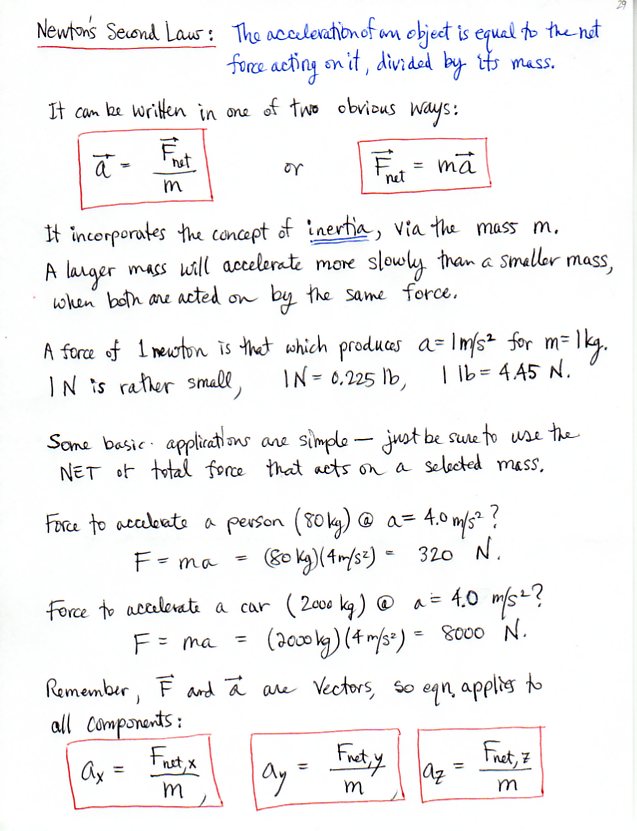 29
Newton's Second Law: The acceleration of an object is equal to the net
force acting on it, divided by its mass.
It can be written in one of two obvious ways:
a⃗ = F⃗net / m or F⃗net = ma⃗
It incorporates the concept of inertia, via the mass m.
A larger mass will accelerate more slowly than a smaller mass,
when both are acted on by the same force.
A force of 1 newton is that which produces a = 1 m/s² for m = 1 kg.
1 N is rather small, 1 N = 0.225 lb, 1 lb = 4.45 N.
Some basic applications are simple — just be sure to use the
NET or total force that acts on a selected mass.
Force to accelerate a person (80 kg) @ a = 4.0 m/s²?
F = ma = (80 kg)(4 m/s²) = 320 N.
Force to accelerate a car (2000 kg) @ a = 4.0 m/s²?
F = ma = (2000 kg)(4 m/s²) = 8000 N.
Remember, F⃗ and a⃗ are Vectors, so eqn. applies to
all components:
ax = Fnet,x / m, ay = Fnet,y / m, az = Fnet,z / m